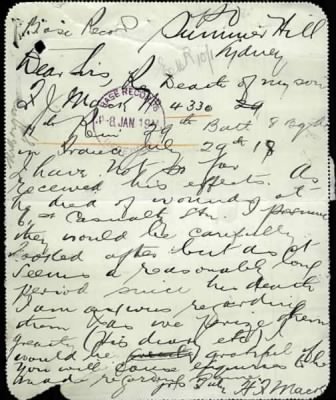 Base Record
Summer Hill
Sydney
Dear Sirs Re Death of my son
BASE RECORDS
8 JAN 19
F J 4330
29th Batt 8 Bgde
in France July 29th 18
I have not so far
received his effects. As
he died of wounds at
61st Casualty Stn I presume
they would be carefully
looked after but as it
seems a reasonably long
period since his death
I am anxious regarding
them as we prize them
greatly (his diary etc)
would be greatly grateful if
you will cause inquiries to be
made regarding same